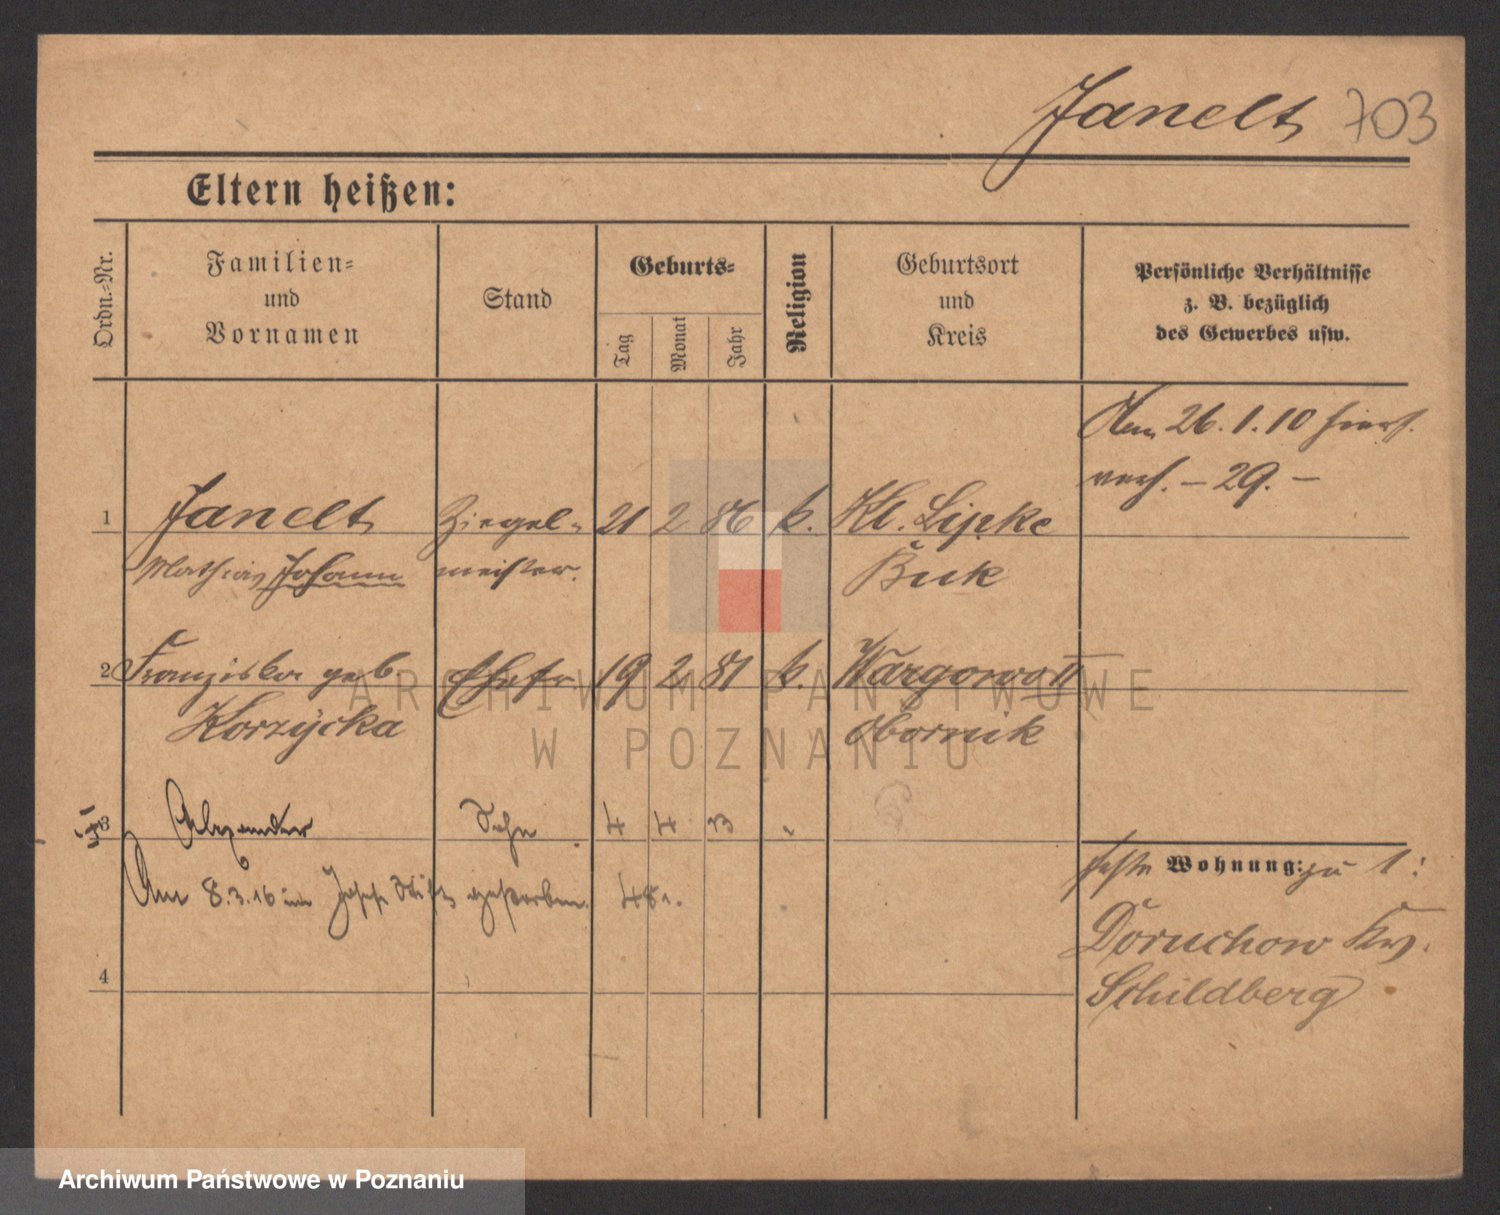 Janelt 703
Eltern heißen:
Ordn.-Nr.
Familien- und Vornamen
Stand
Geburts-
Tag
Monat
Jahr
Religion
Geburtsort und Kreis
Persönliche Verhältnisse z. B. bezüglich des Gewerbes usw.
Am 26.1.10 hiers.
verh. – 29. –
1 Janelt Ziegel- 21 2 86 k. Kl. Lipke
Mathias Johann meister. Buk
2 Franziska geb Ehefr 19 2 81 k. Wargowo II
Korzÿcka Obornik
3 Alexander Sohn 4 4 13 "
Am 8.3.16 im Josef Stift gestorben.
4
feste Wohnung: zu 1:
Doruchow Krs.
Schildberg
ARCHIWUM PAŃSTWOWE
W POZNANIU
Archiwum Państwowe w Poznaniu